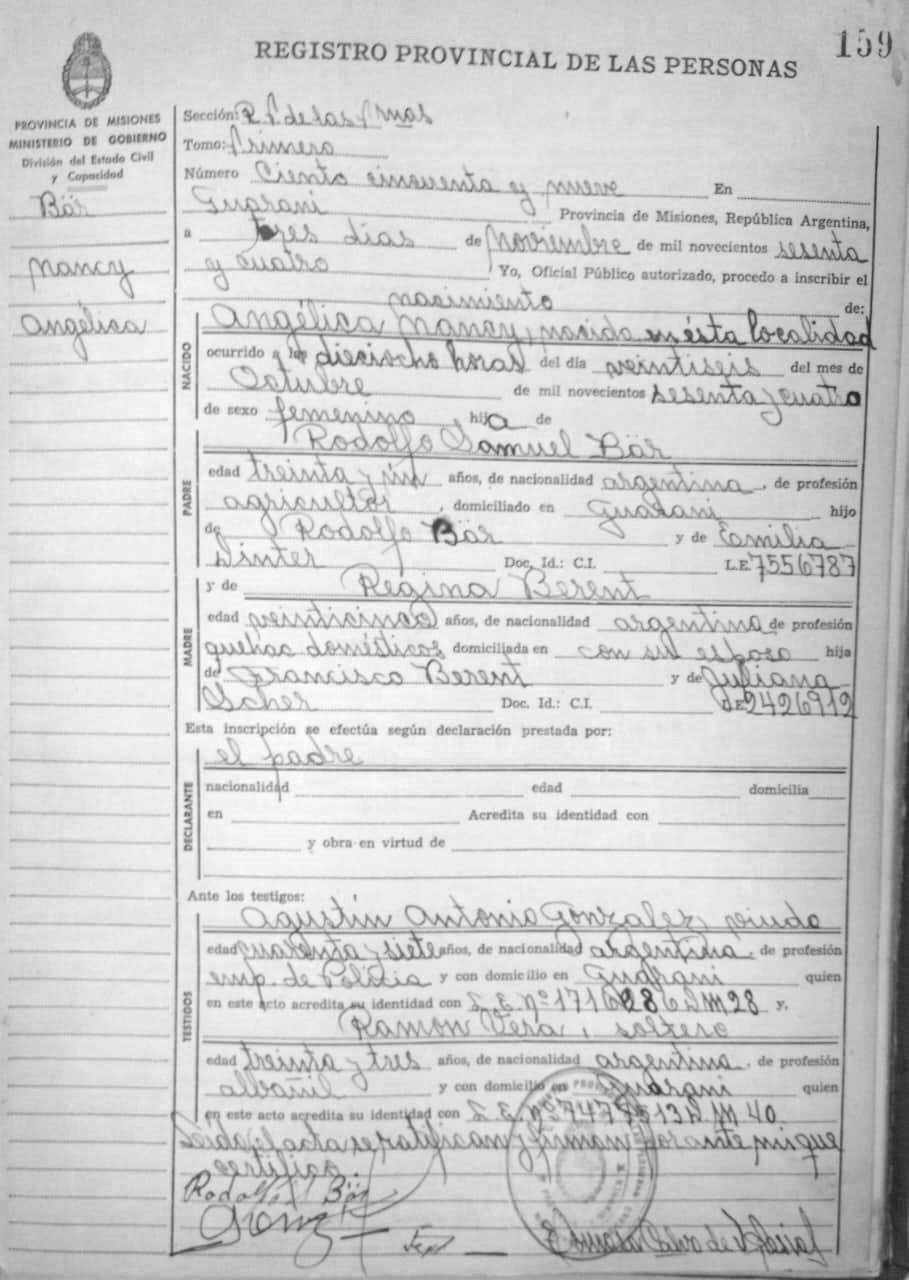 159
REGISTRO PROVINCIAL DE LAS PERSONAS
PROVINCIA DE MISIONES
MINISTERIO DE GOBIERNO
División del Estado Civil
y Capacidad
Bär
Nancy
Angélica
Sección: R. P. de las
Tomo: Primero
Número Ciento cincuenta y nueve En
Guarani Provincia de Misiones, República Argentina,
a tres días de Noviembre de mil novecientos sesenta
y cuatro Yo, Oficial Público autorizado, procedo a inscribir el
nacimiento de:
NACIDO
Angélica Nancy, nacida en ésta localidad
ocurrido a las dieciocho horas del día veintiseis del mes de
Octubre de mil novecientos sesenta y cuatro
de sexo femenino hija de
PADRE
Rodolfo Samuel Bär
edad treinta y un años, de nacionalidad argentina, de profesión
agricultor, domiciliado en Guarani hijo
de Rodolfo Bär y de Emilia
Winter Doc. Id.: C.I. L.E 7556787
MADRE
y de Regina Berent
edad veinticinco años, de nacionalidad argentina de profesión
quehac domésticos domiciliada en con su esposo hija
de Francisco Berent y de Juliana
Scher Doc. Id.: C.I. 2426912
Esta inscripción se efectúa según declaración prestada por:
DECLARANTE
el padre
nacionalidad edad domicilia
en Acredita su identidad con
y obra en virtud de
Ante los testigos:
TESTIGOS
Agustín Antonio Gonzalez, viudo
edad cuarenta y siete años, de nacionalidad argentina, de profesión
emp. de Policia y con domicilio en Guarani quien
en este acto acredita su identidad con L. E. nº y.
Ramon Vera, soltero
edad treinta y tres años, de nacionalidad argentina, de profesión
albañil y con domicilio en Guarani quien
en este acto acredita su identidad con L. E. nº
Leída el acta se ratifican y firman por ante mi que
certifico.
Rodolfo Bär